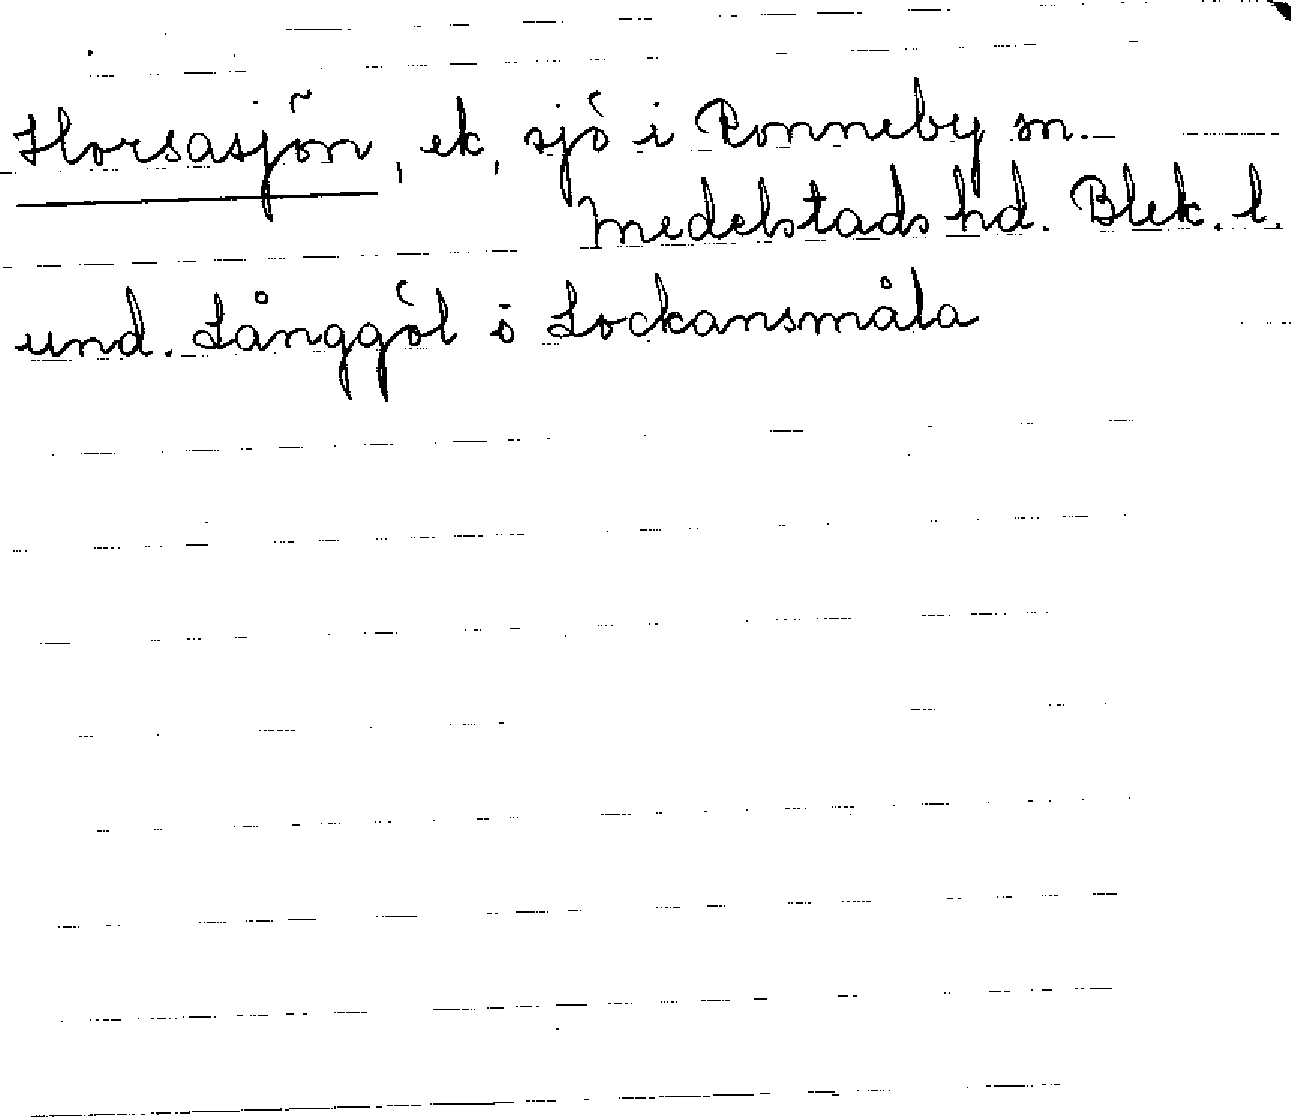 Horsasjön, ek, sjö i Ronneby sn.
Medelstads hd. Blek. l.
und. Långgöl ö Lockansmåla